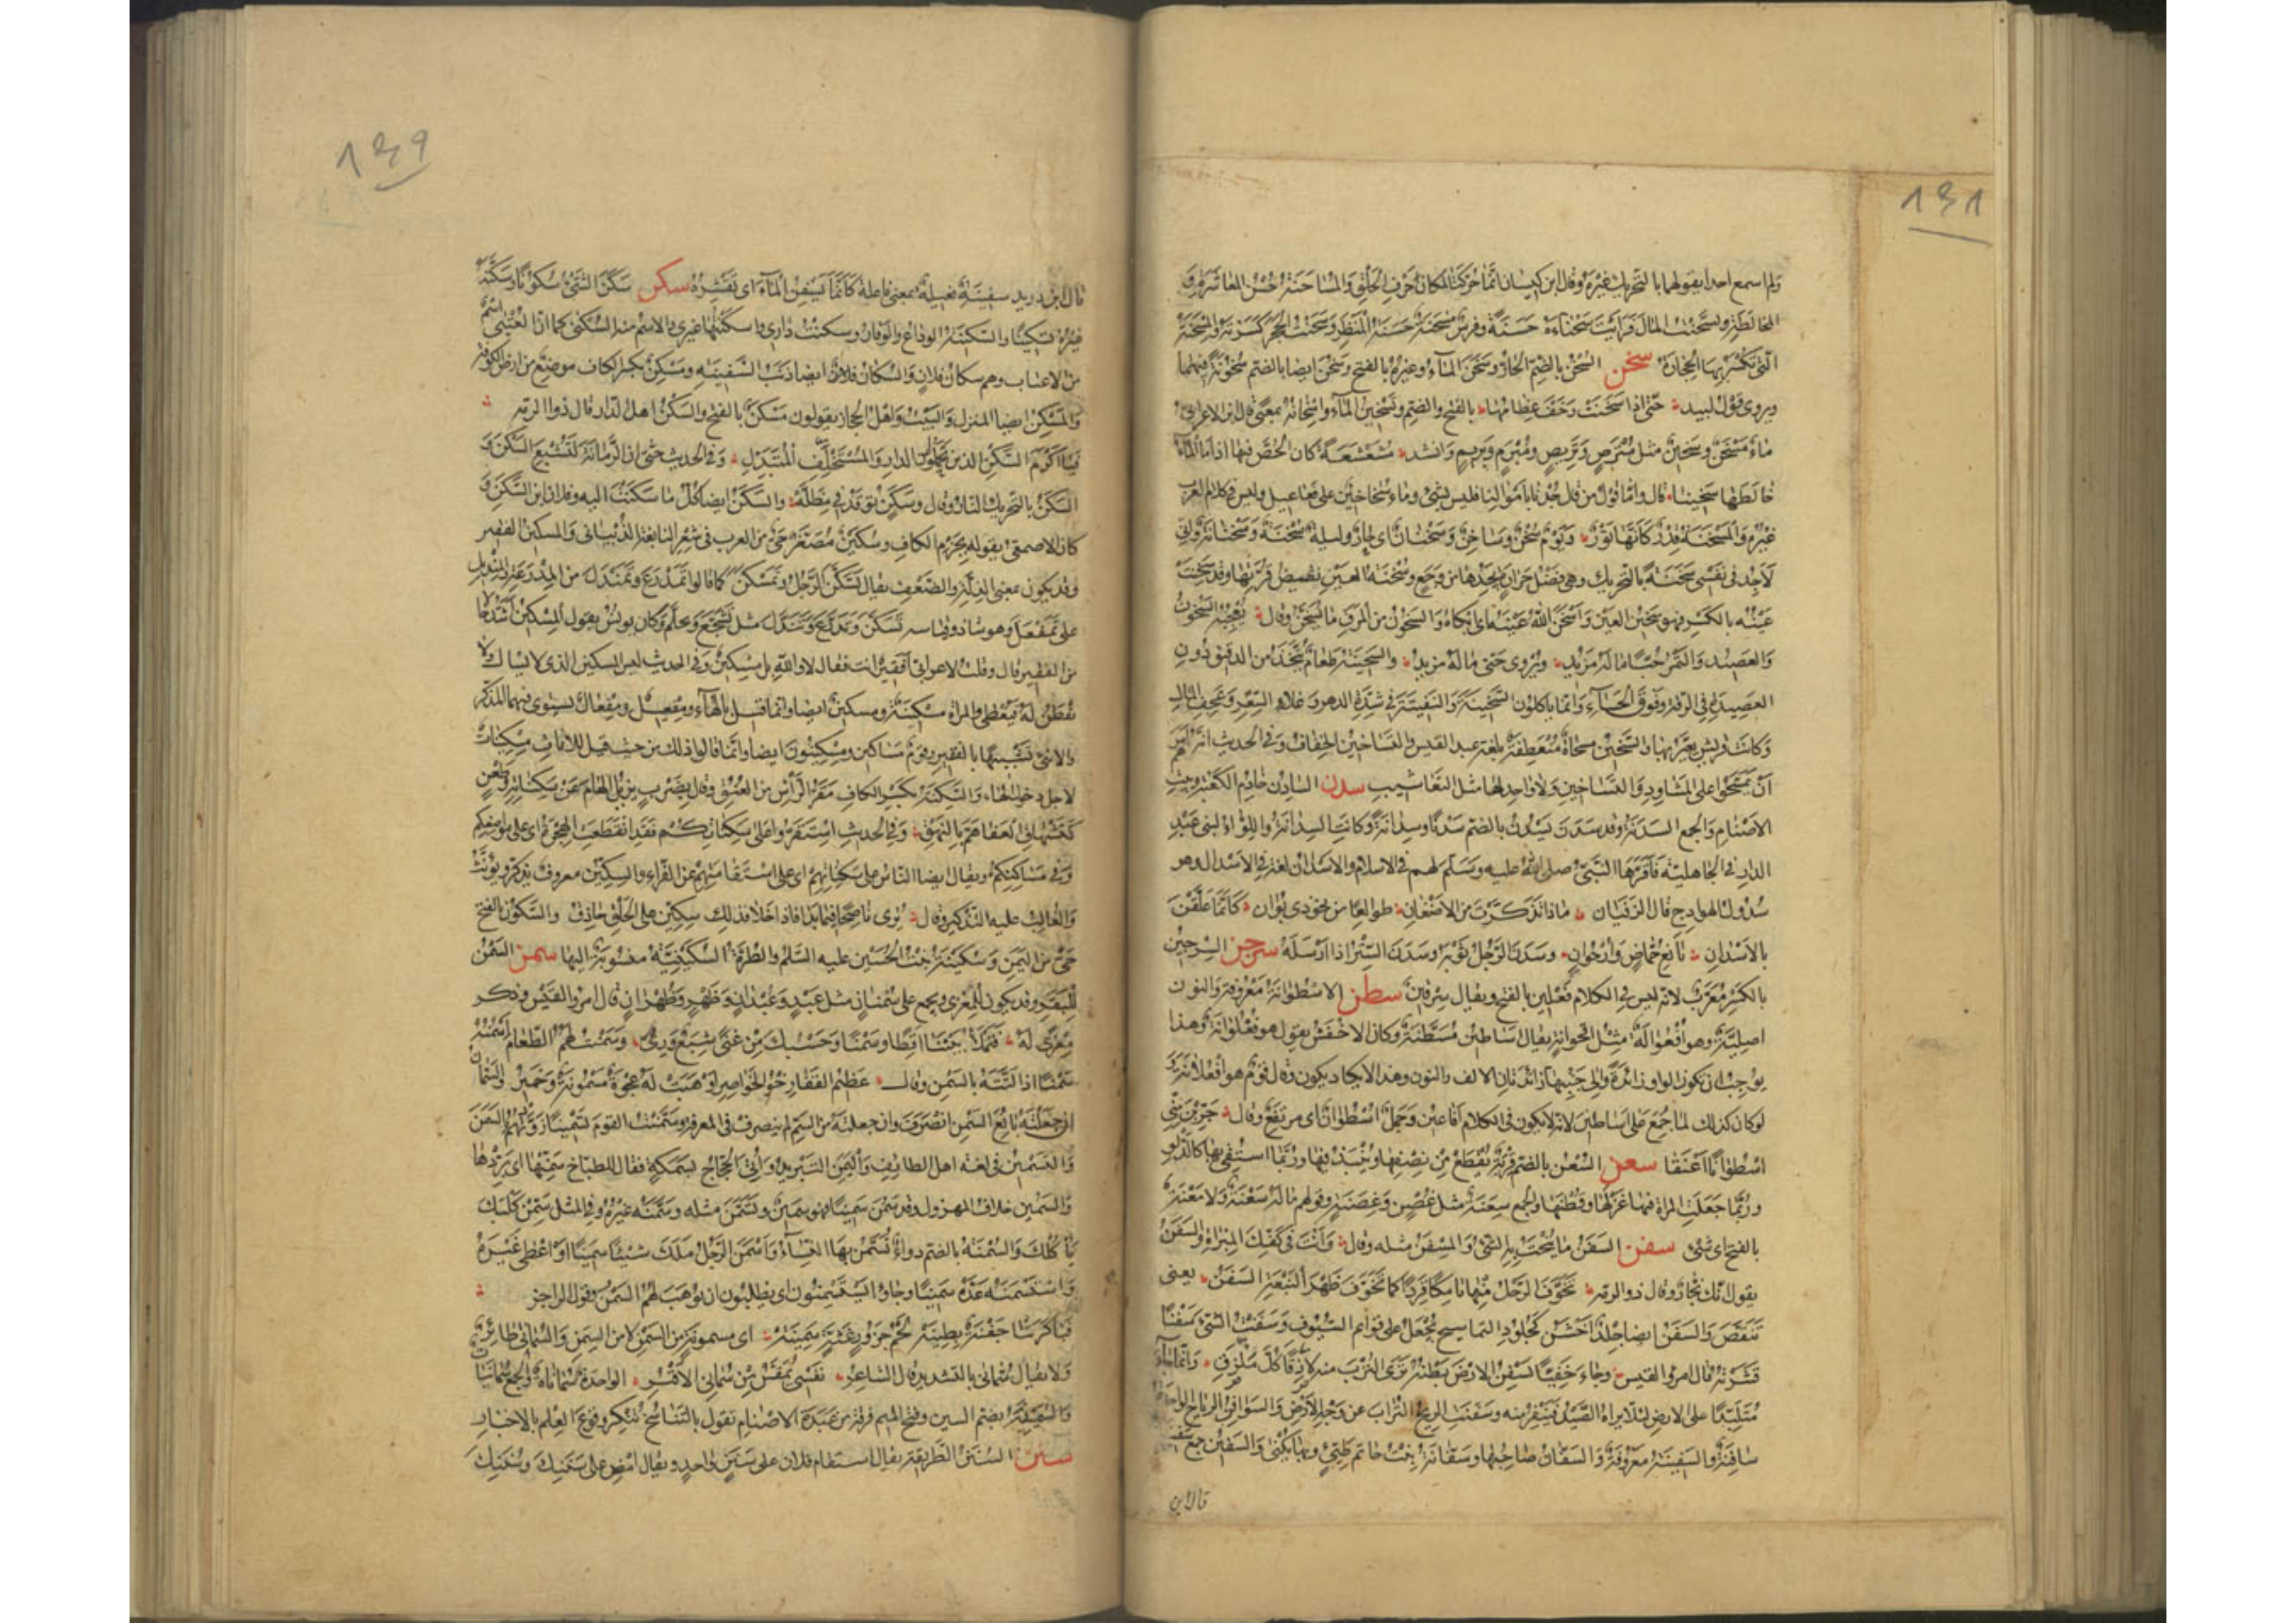 ١٤١
ولم اسمع احدا يقولهما بالتحريك غيره وقال ابن كيسان انما حركتا لمكان حرف الحلق والمساحنة حسن المعاشرة و
المخالطة وتسحنت المال فرايت سحناءه حسنة وفرس مسحنة حسنة المنظر وسحنت الحجر كسرته والمسحنة
التى تكسر بها الحجارة سخن السخن بالضم الحار وسخن الماء وغيره بالفتح وسخن ايضا بالضم سخونة فيهما
ويروى قول لبيد حتى اذا سخنت وخف عظامها بالفتح والضم وتسخين الماء واسخانه بمعنى قال ابن الاعرابى
ماء مسخن وسخين مثل مترص وتريص ومبرم وبريم وانشد مشعشعة كان الحص فيها اذا ما الماء
خالطها سخينا قال واما قول من قال جدنا باموالنا فليس بشئ وماء سخاخين على فعاعيل وليس فى كلام العرب
غيره والمسخنة قدر كانها تور ويوم سخن وساخن وسخنان اى حار وليلة سخنة وسخنانة وانى
لاجد فى نفسى سخنة بالتحريك وهى فضل حرارة يجدها من وجع وسخنة العين نقيض قرتها وقد سخنت
عينه بالكسر فهو سخين العين واسخن الله عينه اى ابكاه والسخون من المرق ما يسخن وقال يعجبه السخون
والعصيد والتمر حبا ما له مزيد ويروى حتى ما له مزيد والسخينة طعام يتخذ من الدقيق دون
العصيدة فى الرقة وفوق الحساء وانما ياكلون السخينة والنفيتة فى شدة الدهر وغلاء السعر وعجف المال
وكانت قريش تعير بها والسخين مسحاة منعطفة بلغة عبد القيس والتساخين الخفاف وفى الحديث انه امرهم
ان يمسحوا على المشاوذ والتساخين ولا واحد لها مثل التعاشيب سدن السادن خادم الكعبة وبيت
الاصنام والجمع السدنة وقد سدن يسدن بالضم سدنا وسدانة وكانت السدانة واللواء لبنى عبد
الدار فى الجاهلية فاقرها النبى صلى الله عليه وسلم لهم فى الاسلام والاسدان لغة فى الاسدال وهو
سدول الهوادج قال الزفيان ماذا تذكرت من الاضعان طوالعا من نحو ذى بوان كانما علقن
بالاسدان يانع حماض وارجوان وسدن الرجل ثوبه وسدن الستر اذا ارسله سرجن السرجين
بالكسر معرب لانه ليس فى الكلام فعلين بالفتح ويقال سرقين سطن الاسطوانة معروفة والنون
اصلية وهو افعوالة مثل اقحوانة يقال اساطين مسطنة وكان الاخفش يقول هو فعلوانة وهذا
يوجب ان تكون الواو زائدة والى جنبها زائدتان الالف والنون وهذا لا يكاد يكون وقال قوم هو افعلانة و
لو كان كذلك لما جمع على اساطين لانه لا يكون فى الكلام افاعين وجمل اسطوان اى مرتفع وقال جربن منى
اسطوانا اعنقا سعن السعن بالضم قربة تقطع من نصفها وينبذ فيها وربما استقى بها كالدلو
وربما جعلت المراة فيها غزلها وقطنها والجمع سعنة مثل غصن وغصنة وقولهم ما له سعنة ولا معنة
بالفتح اى شئ سفن السفن ما ينحت به الشئ والمسفن مثله وقال وانت فى كفك المبراة والسفن
يقول انك نجار وقال ذو الرمة تخوف الرحل منها تامكا قردا كما تخوف ظهر النبعة السفن يعنى
تنقص والسفن ايضا جلد اخشن كجلود التماسيح يجعل على قوائم السيوف وسفنت الشئ سفنا
قشرته قال امرؤ القيس وجاء خفيا يسفن الارض بطنه ترى الترب منه لازقا كل ملزق وانما جاء
متلبدا على الارض لئلا يراه الصيد فينفر منه وسفنت الريح التراب عن وجه الارض والسوافن الرياح الواحدة
سافنة والسفينة معروفة والسفان صاحبها وسفانة بنت حاتم طيئ وبها يكنى والسفين جمع سفينة
قال ابن
١٤٩
قال ابن دريد سفينة فعيلة بمعنى فاعلة كانها تسفن الماء اى تقشره سكن سكن الشئ سكونا وسكنه
غيره تسكينا والسكينة الوداع والوقار وسكنت دارى واسكنتها غيرى والاسم منه السكنى كما ان العتبى اسم
من الاعتاب وهم سكان فلان والسكان فلان ايضا ذنب السفينة ومسكن بكسر الكاف موضع من ارض الكوفة
والمسكن ايضا المنزل والبيت واهل الحجاز يقولون مسكن بالفتح والسكن اهل الدار قال ذو الرمة
فيا اكرم السكن الذين تحملوا عن الدار والمستخلف المتبدل وفى الحديث حتى ان الرمانة لتشبع السكن و
السكن بالتحريك النار وقال وسكن توقد فى مظلة والسكن ايضا كل ما سكنت اليه وفلان ابن السكن و
كان الاصمعى يقوله بجزم الكاف وسكين مصغر حى من العرب فى شعر النابغة الذبيانى والمسكين الفقير
وقد يكون بمعنى الذلة والضعف يقال تسكن الرجل وتمسكن كما قالوا تمدرع وتمندل من المدرعة والمنديل
على تمفعل وهو شاذ وقياسه تسكن وتدرع وتندل مثل تشجع وتحلم وكان يونس يقول المسكين اشد حالا
من الفقير قال وقلت لاعرابى افقير انت فقال لا والله بل مسكين وفى الحديث ليس المسكين الذى لا يسال ولا
يفطن له فيعطى والمراة مسكينة ومسكين ايضا وانما قيل بالهاء ومفعيل ومفعال يستوى فيهما المذكر
والانثى تشبيها بالفقيرة وقوم مساكين ومسكينون ايضا وانما قالوا ذلك من حيث قيل للاناث مسكينات
لاجل دخول الهاء والسكنة بكسر الكاف مقر الراس من العنق وقال بضرب يزيل الهام عن سكناته وطعن
كتشهاق العفا هم بالنهق وفى الحديث استقروا على سكناتكم فقد انقطعت الهجرة اى على مواضعكم
وفى مساكنكم ويقال ايضا الناس على سكناتهم اى على استقامتهم عن الفراء والسكين معروف يذكر ويؤنث
والغالب عليه التذكير وقال يرى ناصحا فيما بدا فاذا خلا فذلك سكين على الحلق حاذق والسكون بالفتح
حى من اليمن وسكينة بنت الحسين عليه السلم والطرة السكينية منسوبة اليها سمن السمن
للبقر وقد يكون للمعزى ويجمع على سمنان مثل عبد وعبدان وظهر وظهران قال امرؤ القيس وذكر
معزى له فتملا بيتنا اقطا وسمنا وحسبك من غنى شبع ورى وسمنت لهم الطعام اسمنه
سمنا اذا لتته بالسمن وقال عظيم القفا رخو الخواصر اوهبت له عجوة مسمونة وخمير والسمان
ان جعلته بائع السمن انصرف وان جعلته من السم لم ينصرف فى المعرفة وسمنت القوم تسمينا زودتهم السمن
والتسمين فى لغة اهل الطائف واليمن التبريد واتى الحجاج بسمكة فقال للطباخ سمنها اى بردها
والسمين خلاف المهزول وقد سمن سمنا فهو سمين وتسمن مثله وسمنه غيره وفى المثل سمن كلبك
ياكلك والسمنة بالضم دواء تسمن بها النساء واسمن الرجل ملك شيئا سمينا او اعطى غيره
واستسمنه عده سمينا وجاوا يستسمنون اى يطلبون ان يوهب لهم السمن وقول الراجز
فباكرتنا جفنة بطينة لحم جزور غثة سمينة اى مسمونة من السمن لا من السمن والسمانى طائر
ولا يقال سمانى بالتشديد قال الشاعر نفسى تمقس من سمانى الاقبر الواحدة سماناة والجمع سمانيات
والسمنية بضم السين وفتح الميم فرقة من عبدة الاصنام تقول بالتناسخ وتنكر وقوع العلم بالاخبار
سنن السنن الطريقة يقال استقام فلان على سنن واحد ويقال امض على سننك وسننك